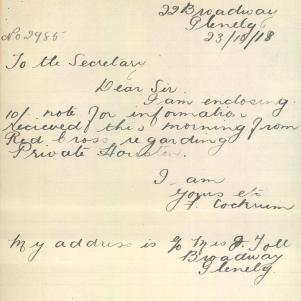 22 Broadway
Glenelg
No 2985
23/10/18
To the Secretary
Dear Sir.
I am enclosing
10/ note for information
recieved this morning from
Red Cross regarding
Private
I am
Yours etc
F. Cockrum
My address is c/o Mrs J. Toll
Broadway
Glenelg